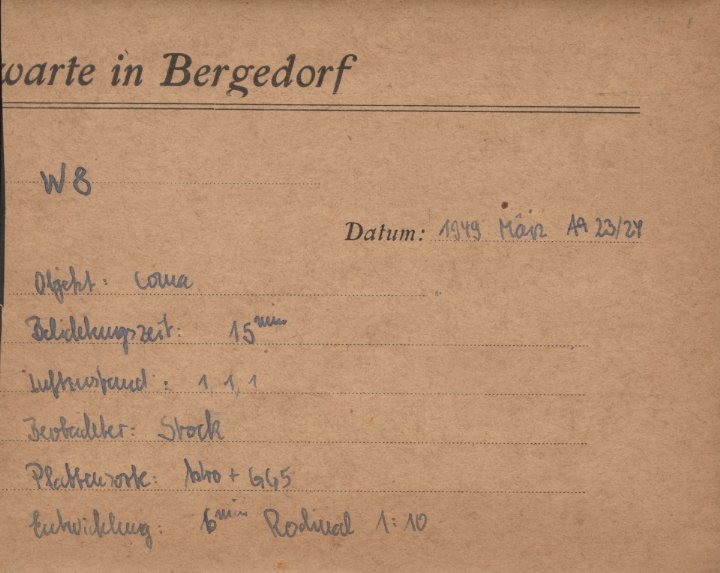 warte in Bergedorf
W 8
Datum: 1949 März 23/24
Objekt: Coma
Belichtungszeit: 15 min
Luftzustand: 1, 1, 1
Beobachter: Stock
Plattensorte: + GG5
Entwicklung: 6 min Rodinal 1:10